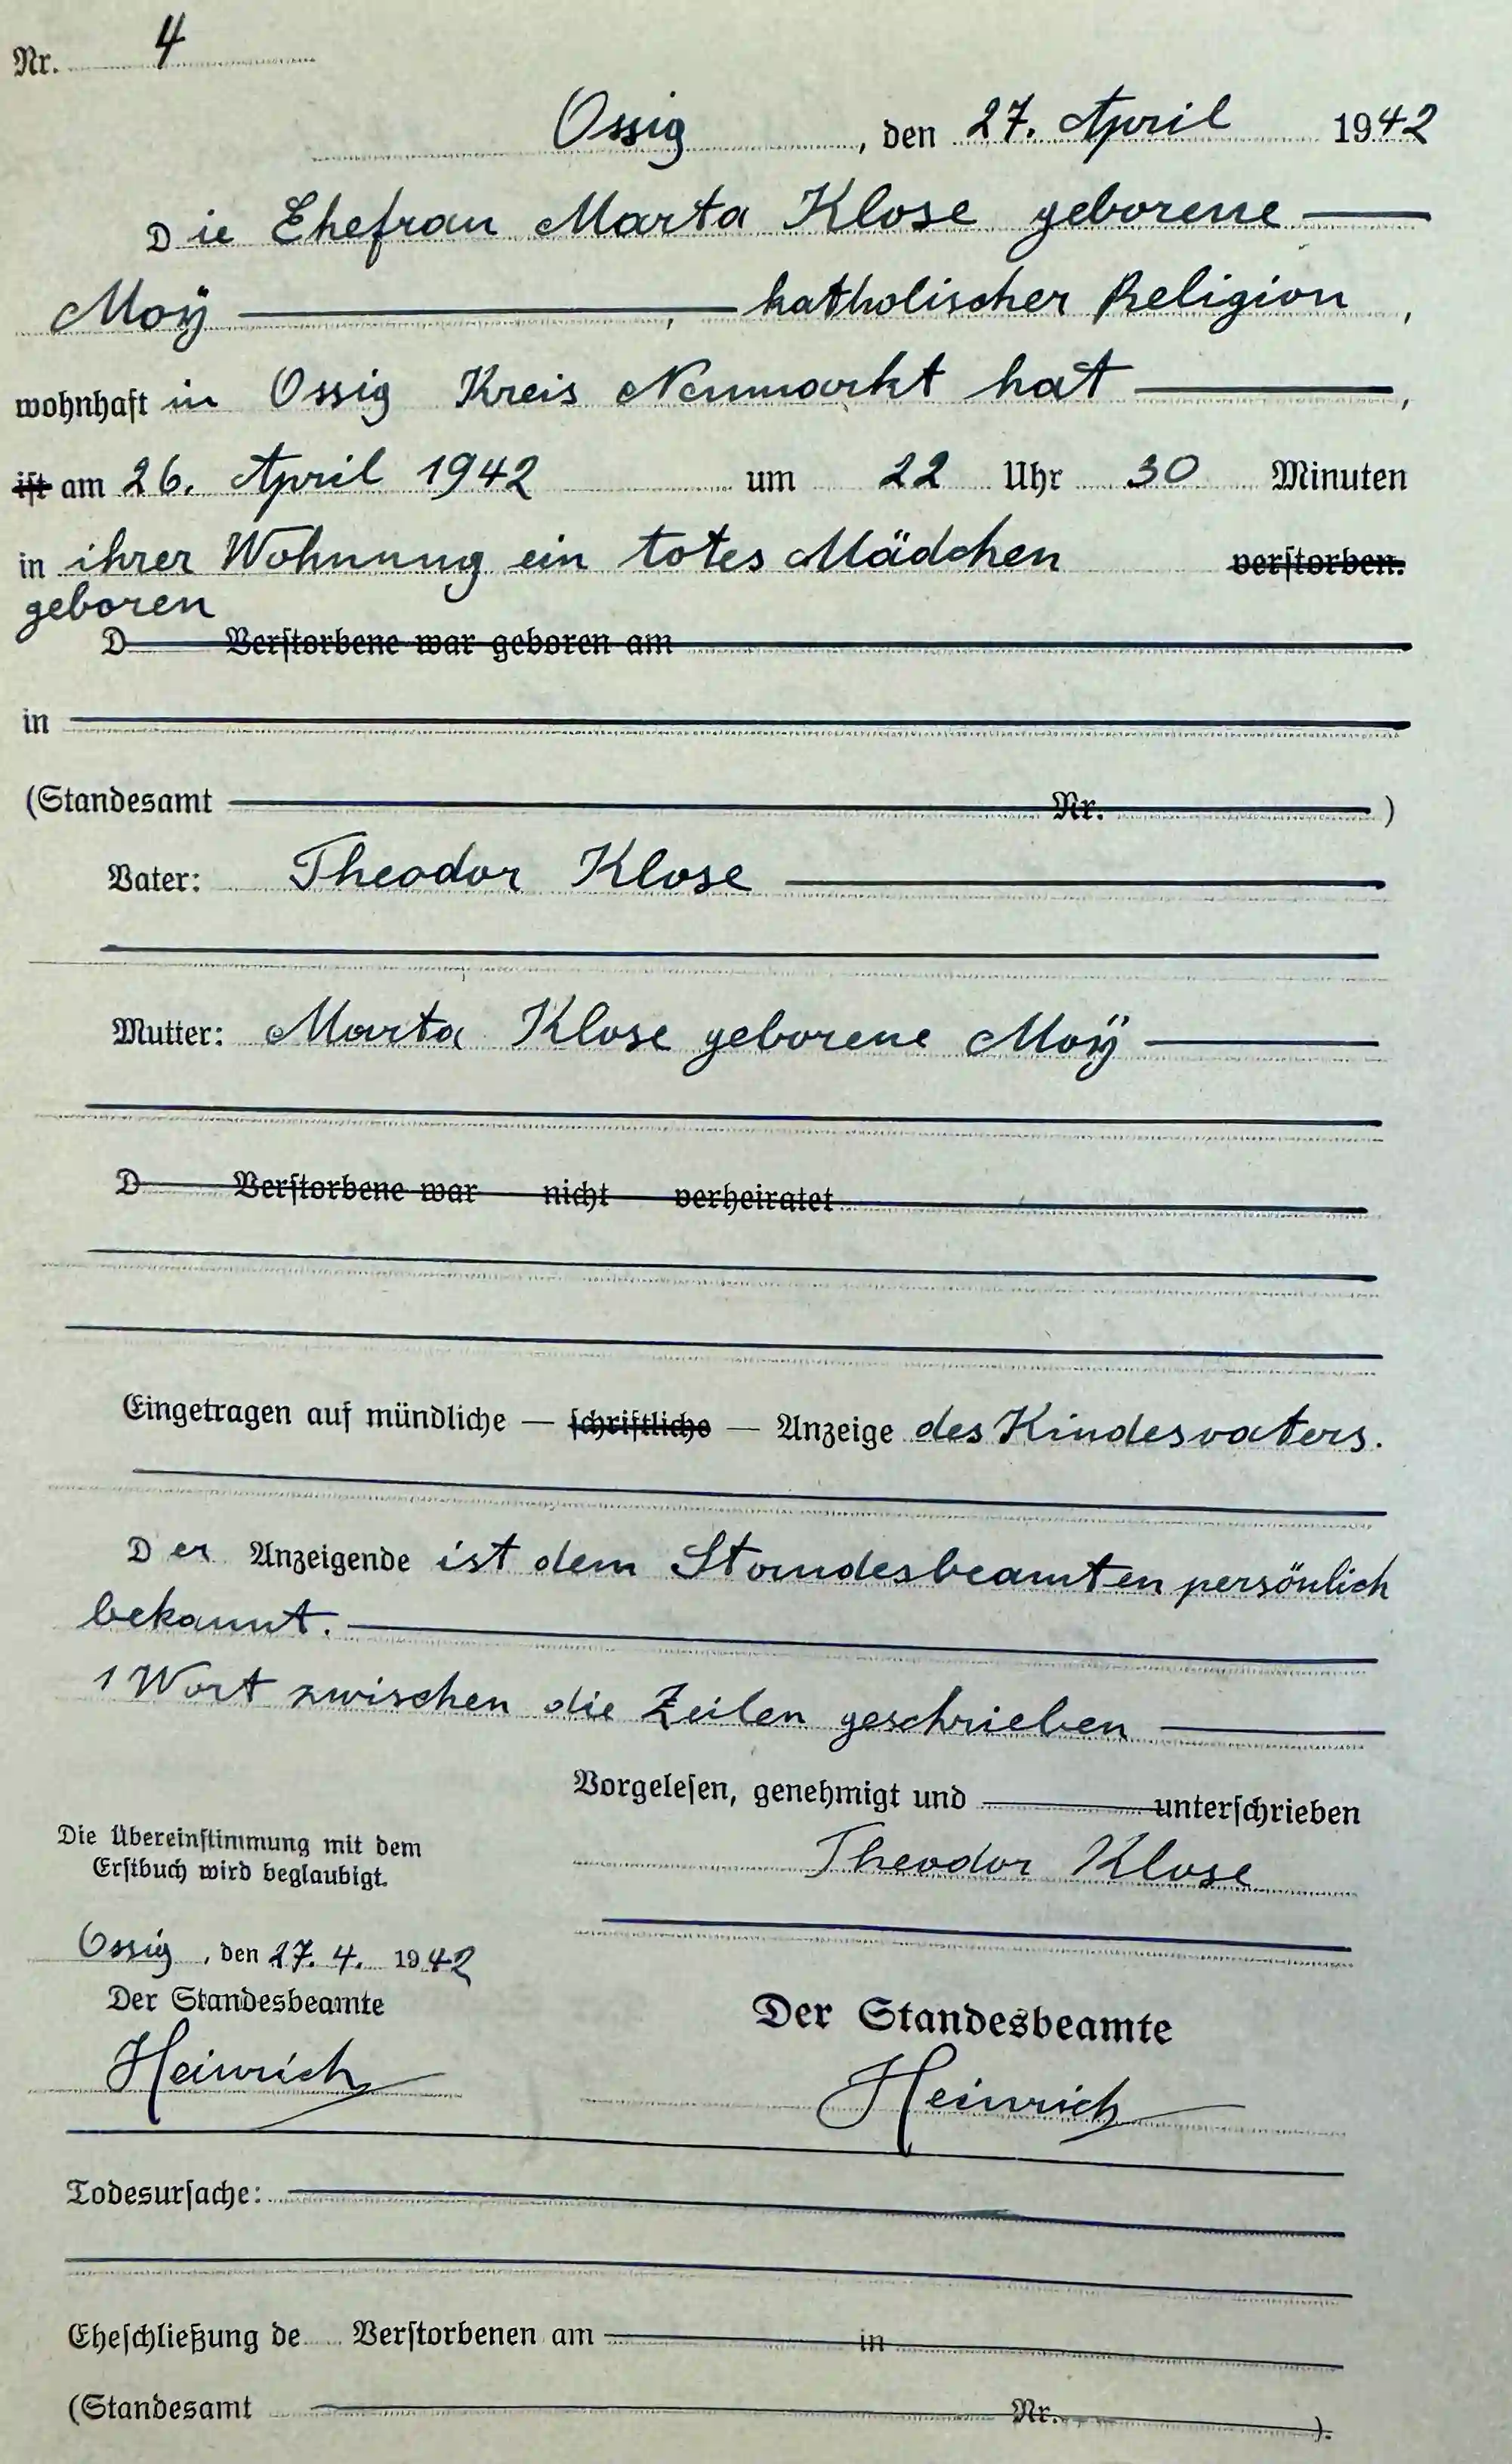 Nr. 4
Ossig, den 27. April 1942
Die Ehefrau Marta Klose geborene
Moÿ, katholischer Religion,
wohnhaft in Ossig Kreis Neumarkt hat,
ist am 26. April 1942 um 22 Uhr 30 Minuten
in ihrer Wohnung ein totes Mädchen verstorben.
geboren
D Verstorbene war geboren am
in
(Standesamt Nr. )
Vater: Theodor Klose
Mutter: Marta Klose geborene Moÿ
D Verstorbene war nicht verheiratet
Eingetragen auf mündliche — schriftliche — Anzeige des Kindesvaters.
Der Anzeigende ist dem Standesbeamten persönlich
bekannt.
1 Wort zwischen die Zeilen geschrieben
Vorgelesen, genehmigt und unterschrieben
Theodor Klose
Die Übereinstimmung mit dem
Erstbuch wird beglaubigt.
Ossig, den 27. 4. 1942
Der Standesbeamte
Heinrich
Der Standesbeamte
Heinrich
Todesursache:
Eheschließung de Verstorbenen am in
(Standesamt Nr. ).